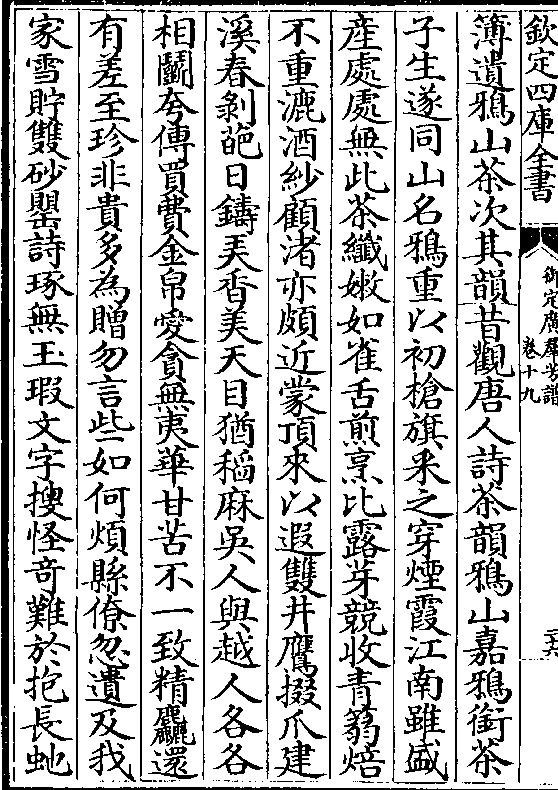 欽定四庫全書
御定廣羣芳譜
卷十九
簿遺鴉山茶次其韻昔觀唐人詩茶韻鴉山嘉鴉銜茶
子生遂同山名鴉重以初槍旗采之穿煙霞江南雖盛
産處處無此茶纖嫩如雀舌煎烹比露芽競收青篛焙
不重漉酒紗顧渚亦頗近蒙頂來以遐雙井鷹掇爪建
溪春剝葩日鑄弄香美天目猶稲麻吳人與越人各各
相鬭夸傳買費金帛愛貪無夷華甘苦不一致精麤還
有差至珍非貴多為贈勿言些如何煩縣僚忽遺及我
家雪貯雙砂罌詩琢無玉瑕文字搜怪奇難於抱長虵